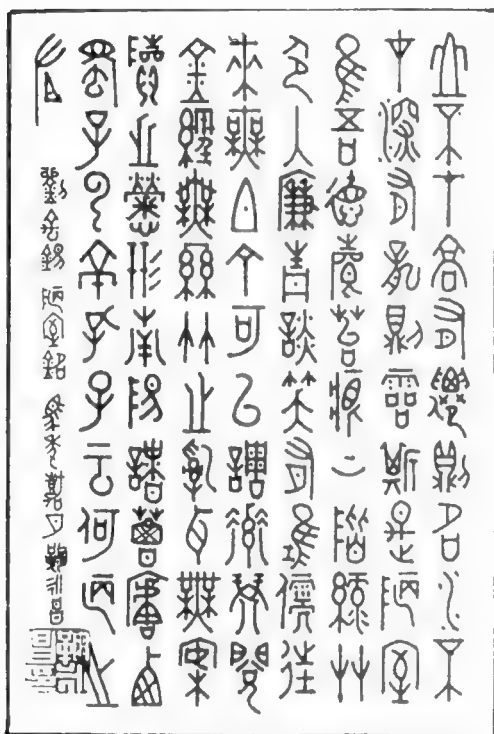 山不在高有僊則名水不
在深有龍則靈斯是陋室
惟吾德馨苔痕上階綠艸
色入簾青談笑有鴻儒往
來無白丁可以調素琴閱
金經無絲竹之亂耳無案
牘之勞形南陽諸葛廬西
蜀子雲亭孔子云何陋之
有
劉禹錫 陋室銘